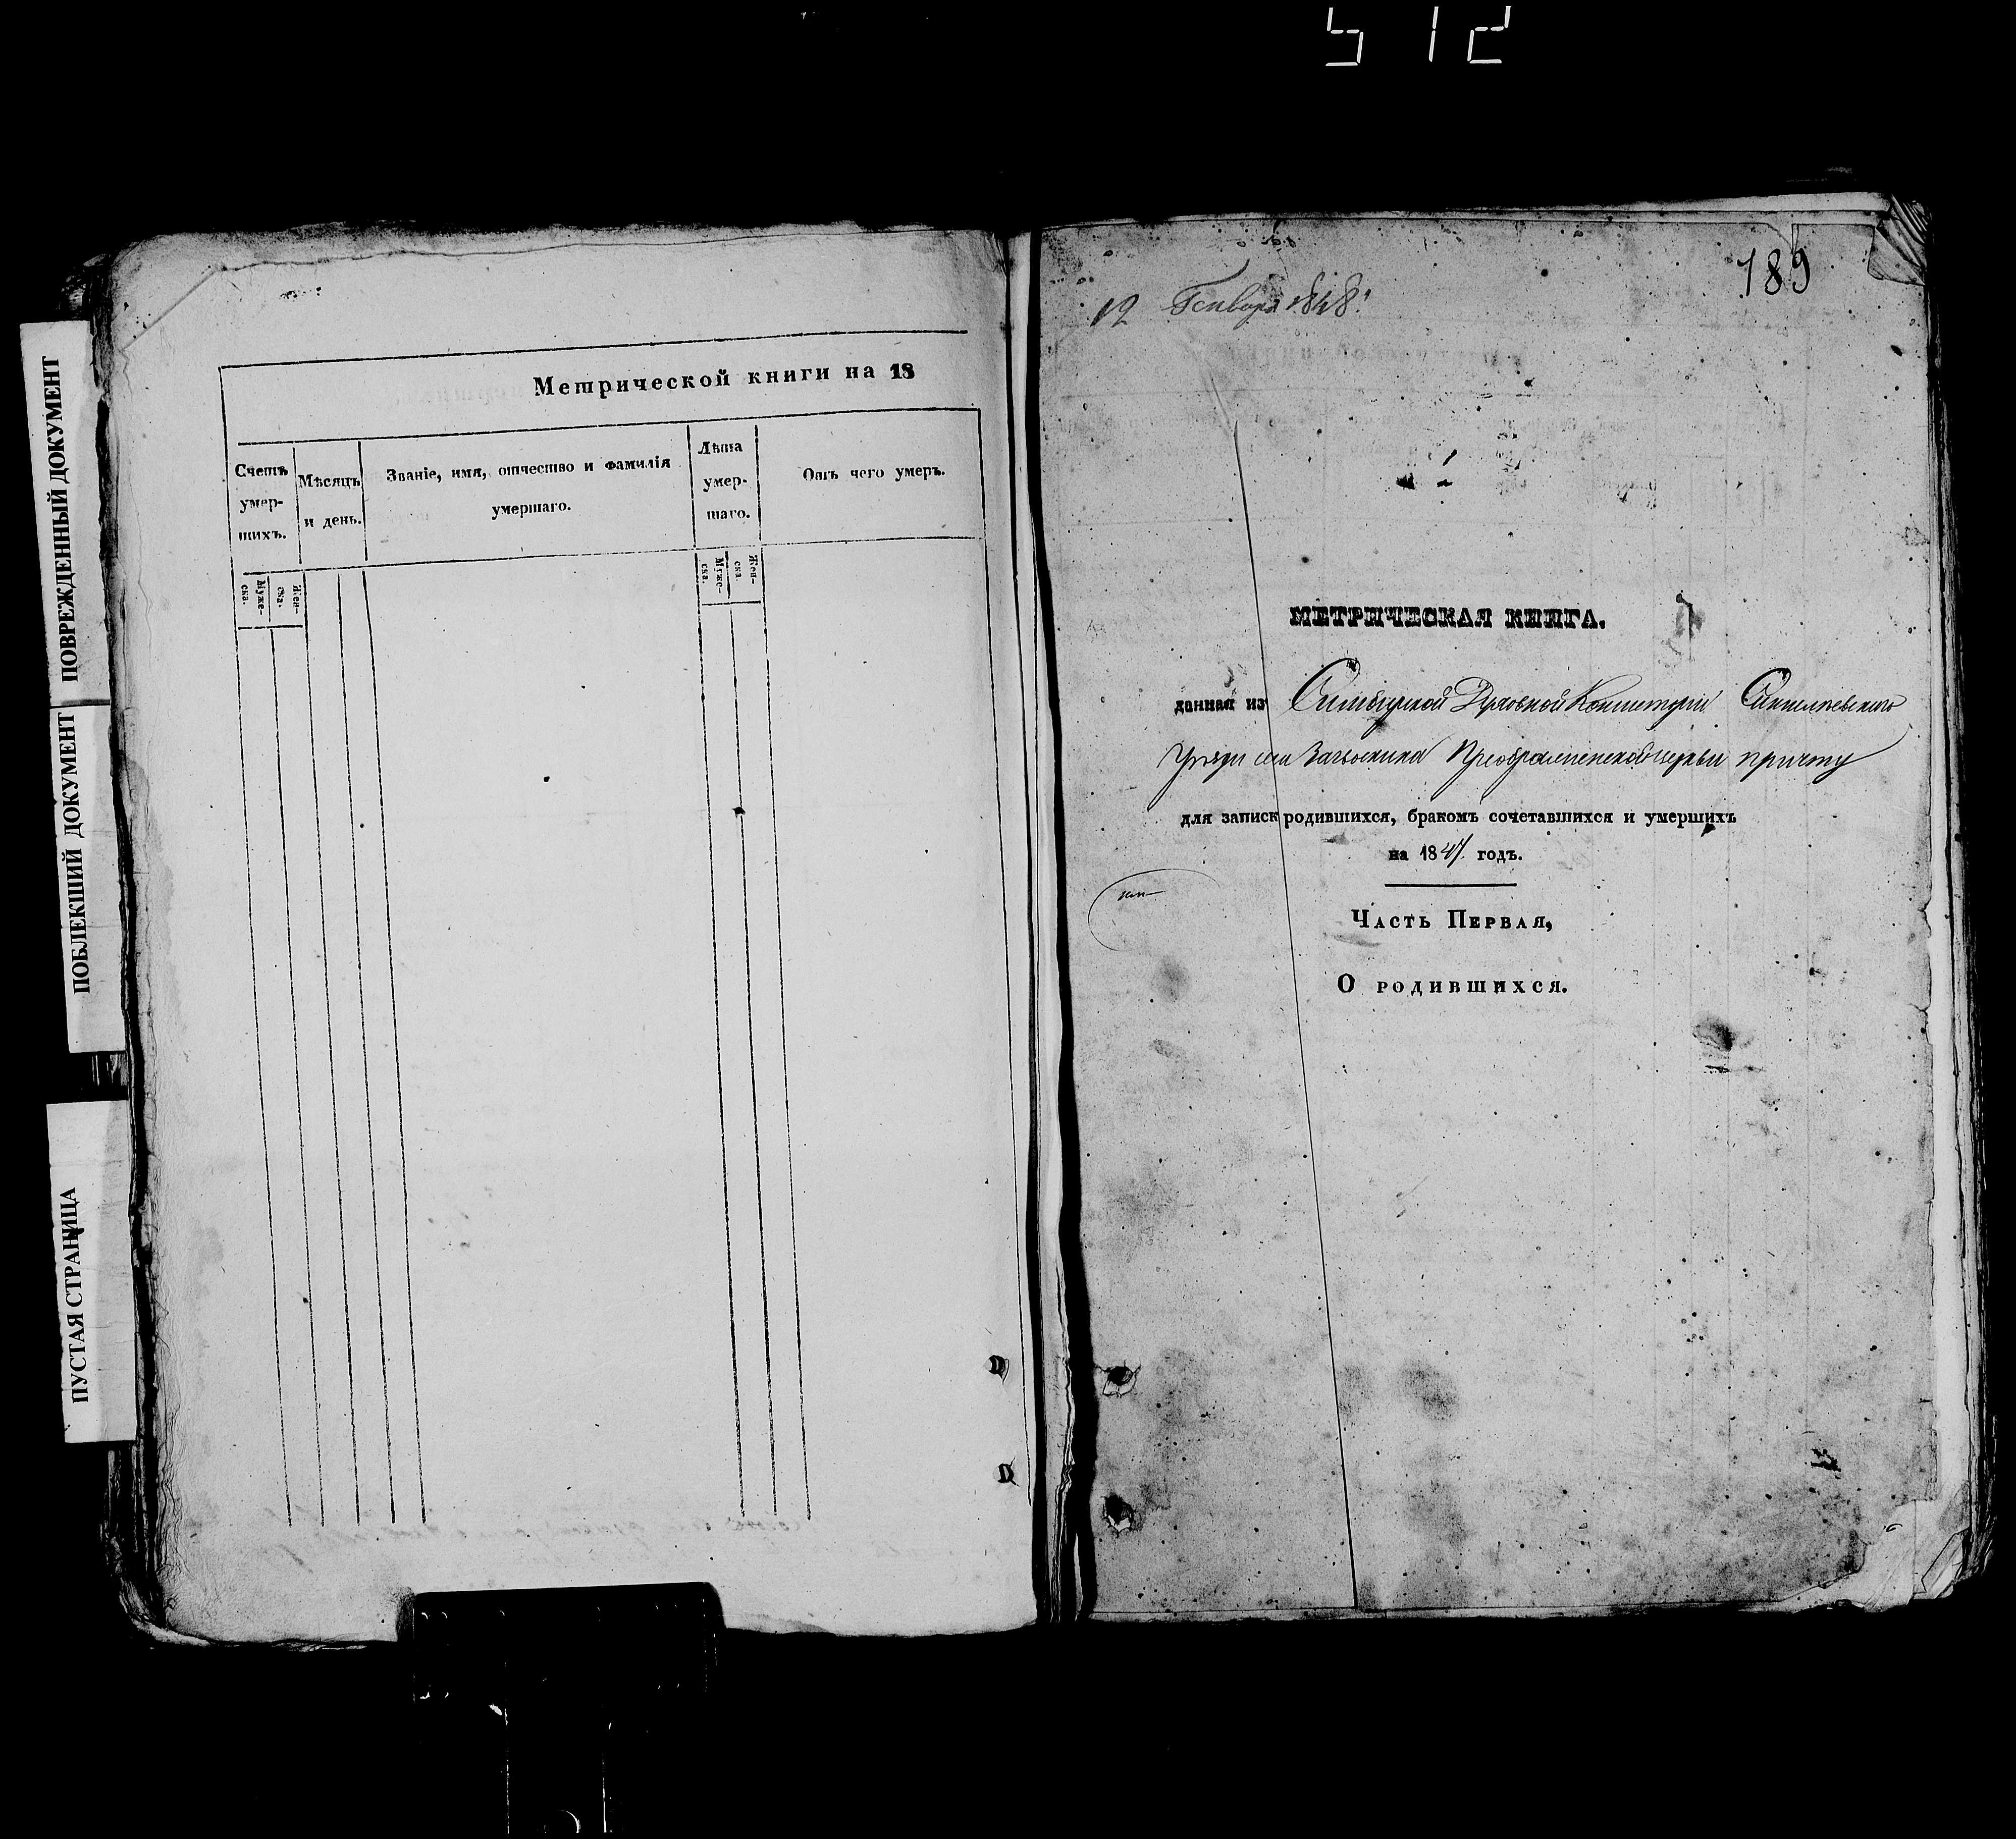 512
ПОВРЕЖДЕННЫЙ ДОКУМЕНТ
ПОБЛЕКШИЙ ДОКУМЕНТ
ПУСТАЯ СТРАНИЦА
Метрической книги на 18
Счетъ умер-шихъ.
Мѣсяцъ и день.
Званіе, имя, отчество и фамилія умершаго.
Лѣта умер-шаго.
Отъ чего умеръ.
Муже-ска.
Жен-ска.
Муже-ска.
Жен-ска.
189
12 Генваря 1848
МЕТРИЧЕСКАЯ КНИГА.
данная из Симбирской Духовной Консисторіи Сингилеевского
уѣзда села Преображенской церкви причту
для записк родившихся, бракомъ сочетавшихся и умершихъ
на 1847 годъ.
Часть Первая,
О родившихся.